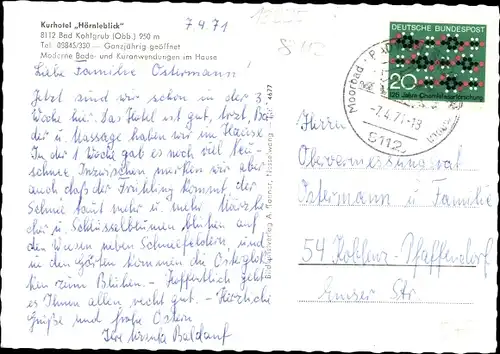 Kurhotel „Hörnleblick"
8112 Bad Kohlgrub (Obb.) 950 m
Tel. 08845/330 — Ganzjährig geöffnet
Moderne Bade- und Kuranwendungen im Hause
7.4.71
Liebe Familie Ostermann!
Jetzt sind wir schon in der 3.
Woche hier. Das Hotel ist gut, Arzt, Bä-
der u. Massage haben wir im Hause
In der 1. Woche gab es noch viel Neu-
schnee. Inzwischen merken wir aber
auch daß der Frühling kommt. Der
Schnee taut mehr u. mehr. Märzbe-
cher u. Schlüsselblumen blühen auf
den Wiesen neben Schneefeldern, und
in den Gärten kommen die Osterglok-
ken zum Blühen. - Hoffentlich geht
es Ihnen allen recht gut. - Herzliche
Grüße und frohe Ostern
Ihre Ursula Baldauf
4677
DEUTSCHE BUNDESPOST
20
125 Jahre Chemiefaserforschung
Moorbad
-7.4.71-13
8112
Herrn
Obervermessungsrat
Ostermann u. Familie
54 Koblenz-Pfaffendorf
Emser Str